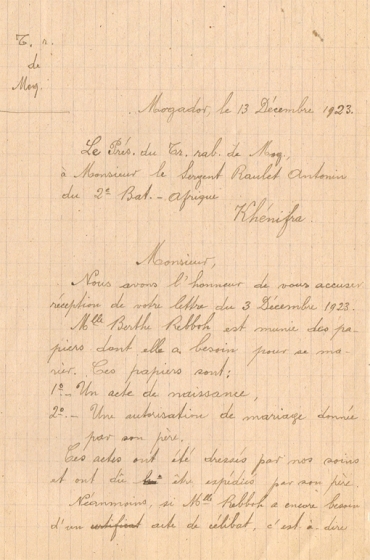 T. r.
de
Mog.
Mogador, le 13 Décembre 1923.
Le Prés. du Tr. rab. de Mog.,
à Monsieur le Sergent Raulet Antonin
du 2e Bat. - Afrique
Khénifra.
Monsieur,
Nous avons l'honneur de vous accuser
réception de votre lettre du 3 Décembre 1923.
Mlle Berthe Rebboh est munie des pa-
piers dont elle a besoin pour se ma-
rier. Ces papiers sont:
1º- Un acte de naissance,
2º.- Une autorisation de mariage donnée
par son père.
Ces actes ont été dressés par nos soins
et ont dû être expédiés par son père.
Néanmoins, si Mlle Rebboh a encore besoin
d'un certificat acte de célibat, c'est à dire